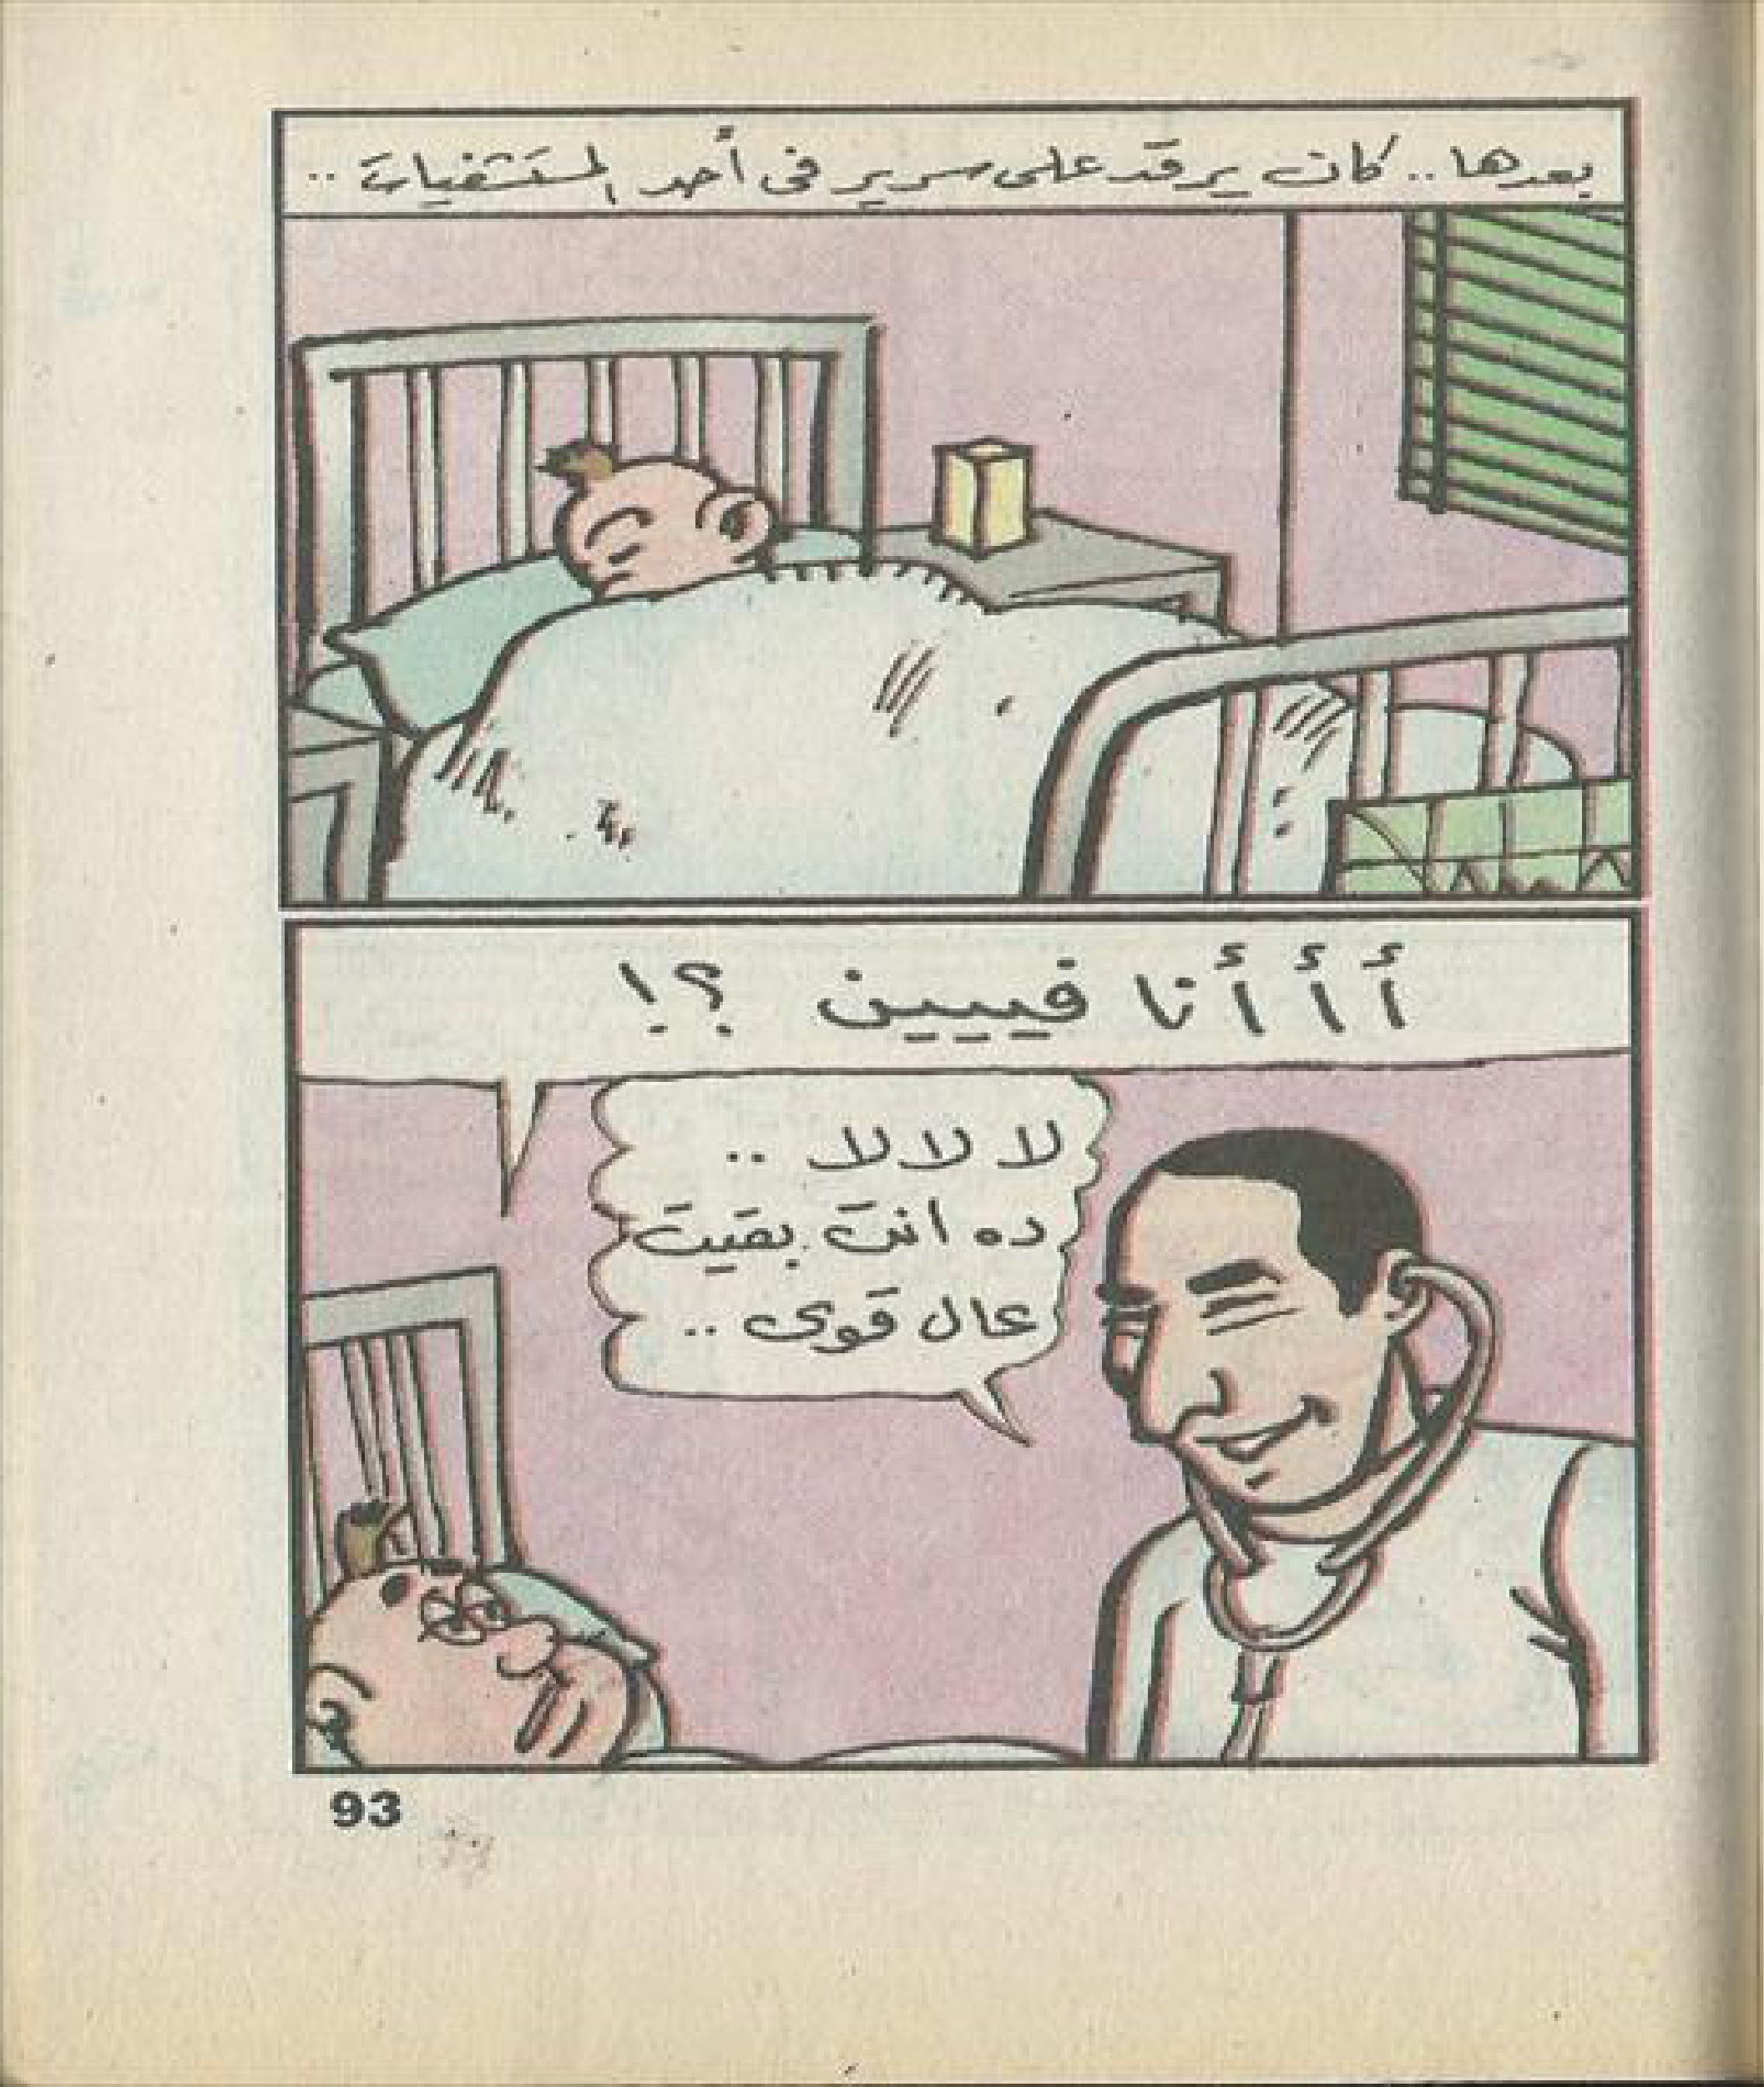 بعدها.. كان يرقد على سرير فى أحد المستشفيات..
أ أ أنا فييين ؟!
لا لا للا ..
ده انت بقيت
عال قوى ..
93